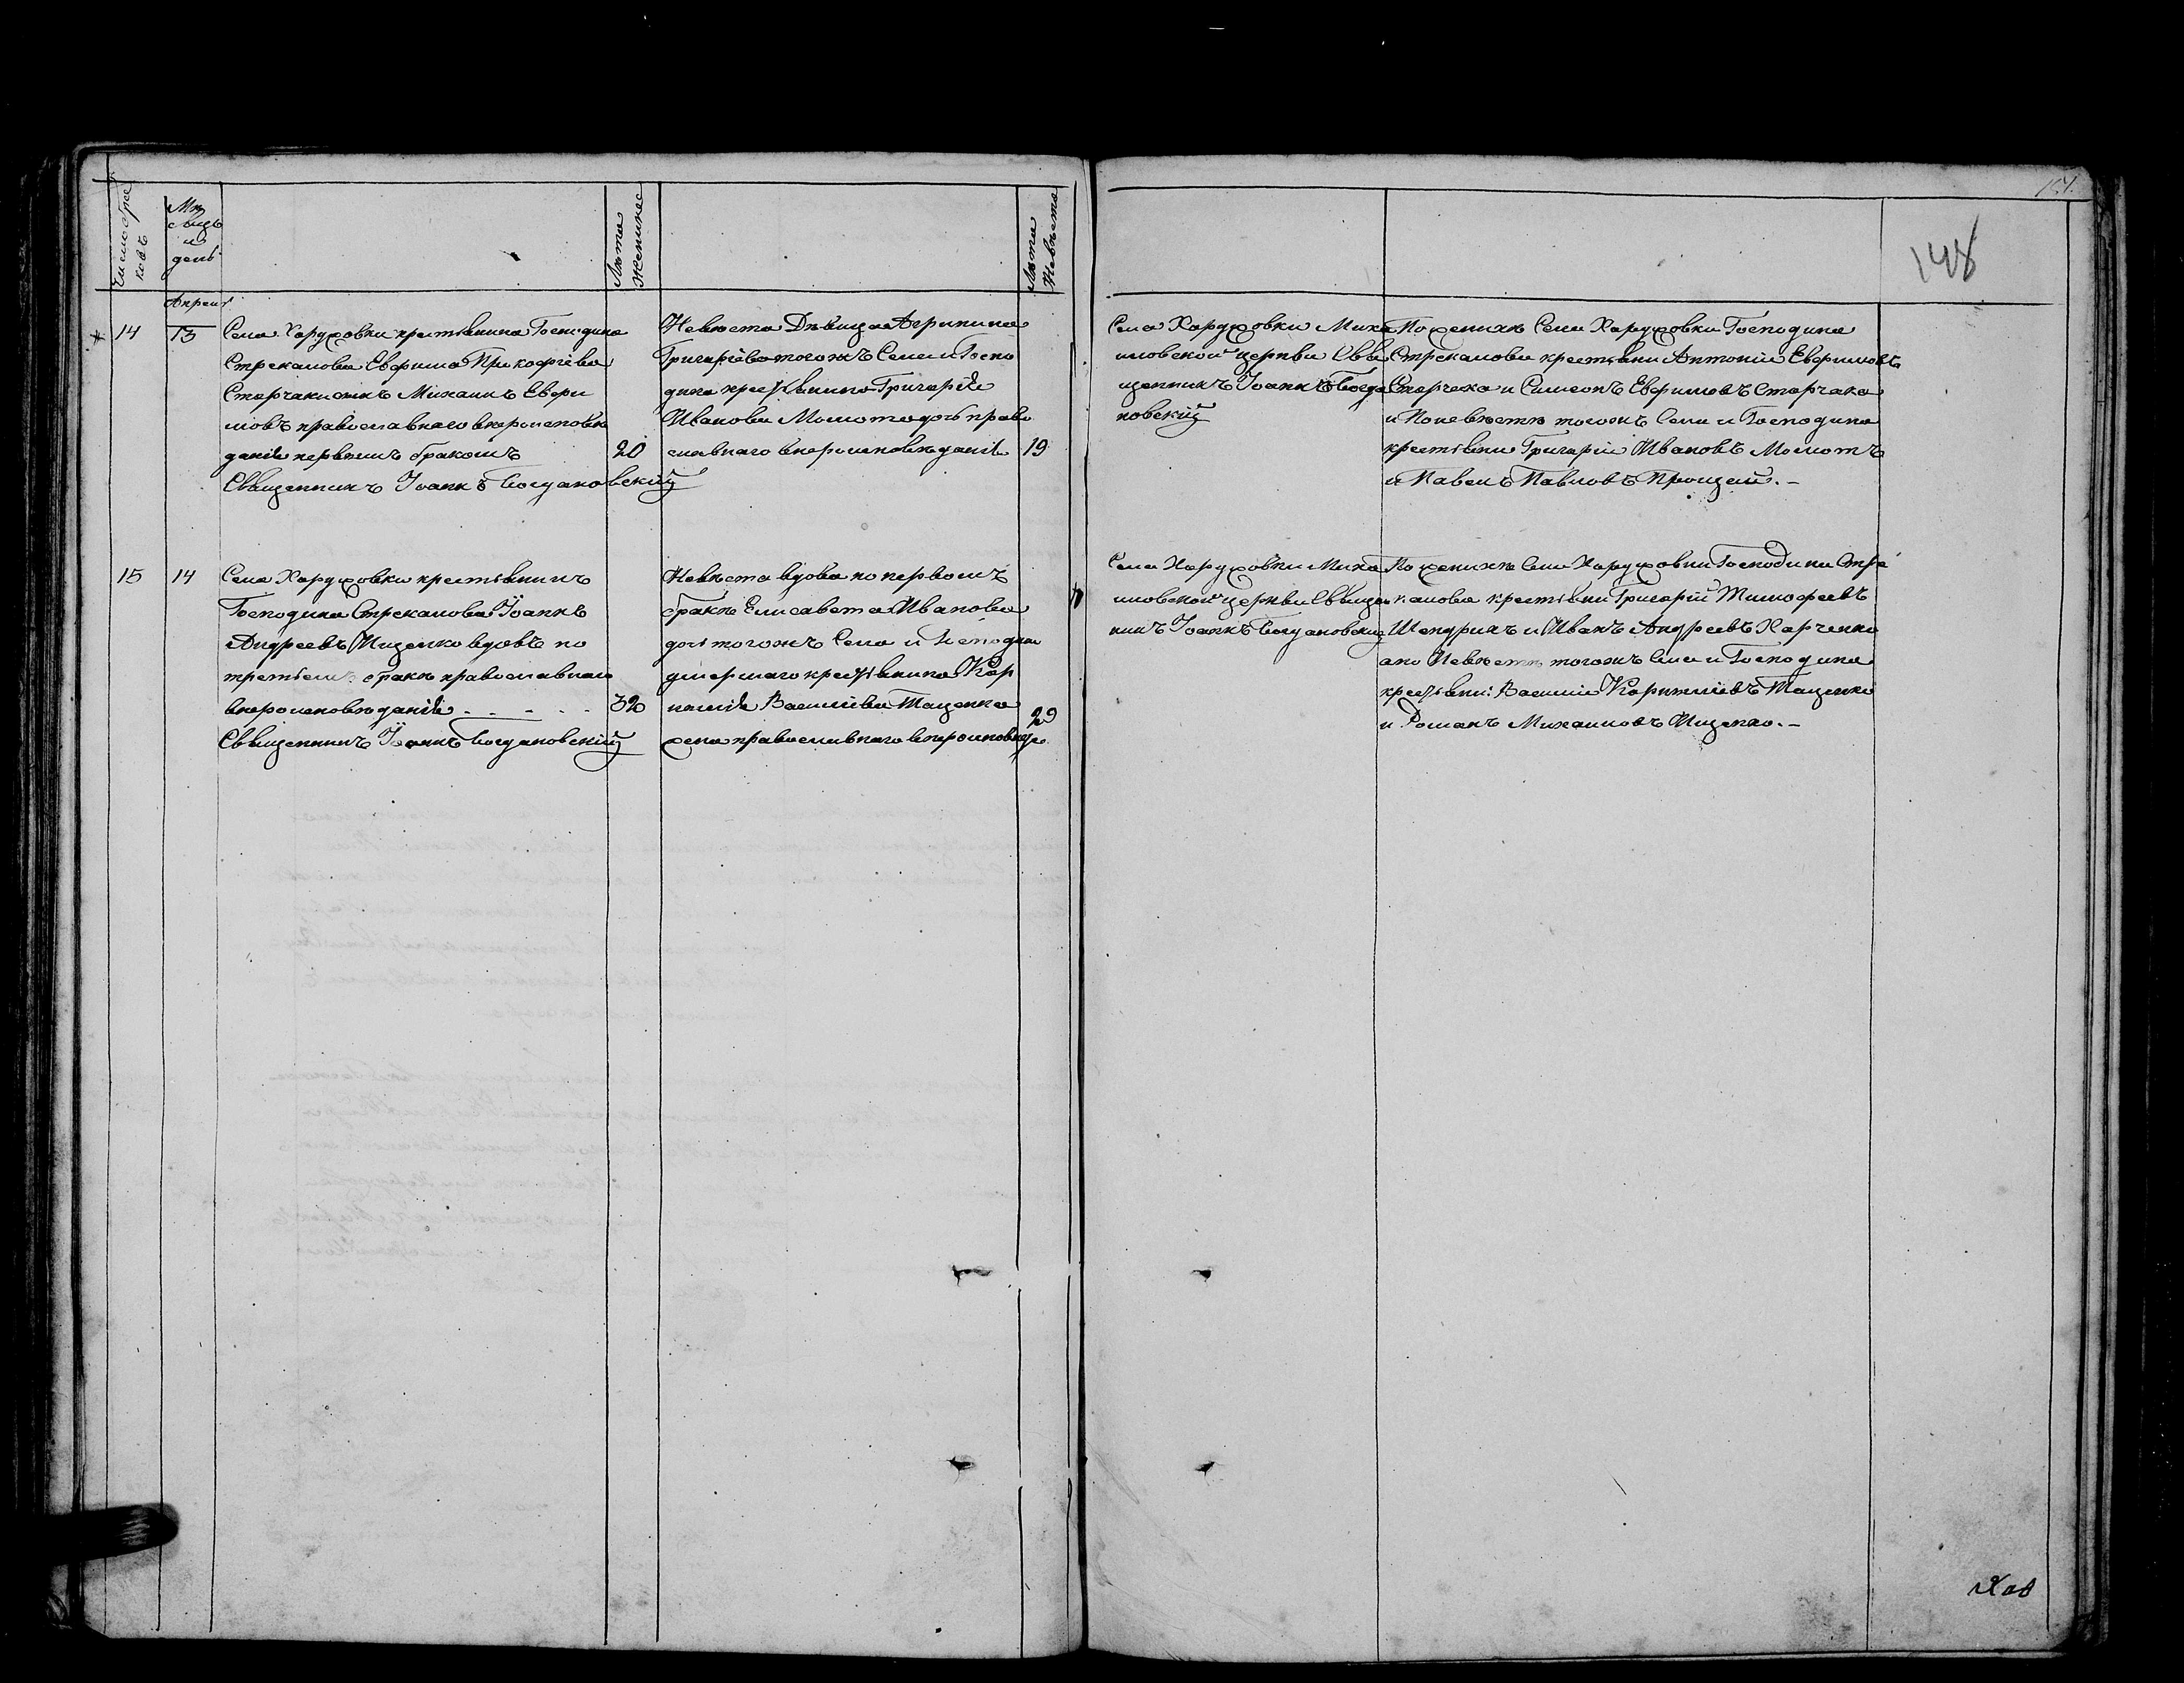 151.
148
Число бра
ковъ
Мѣ
сяцъ
и
день
Лѣта
Жениха
Лѣта
Невѣста
Апреля
14
13
Села Хардуховки крестьянина Господина
Стрекалова Ефрима Прикофіева
Старчака сынъ Михаилъ Ефри
мовъ православнаго вѣроисповѣ
данія первымъ бракомъ
20
Священникъ Іоаннъ Богдановскій
Невѣста Дѣвица Агрипина
Григоріева тогожъ Села и Госпо
дина крестьянина Григорія
Иванова Момота дочь право
славнаго вѣроисповѣданія
19
Села Хардуховки Миха
иловской церкви Свя
щенникъ Іоаннъ Богда
новскій
По женихѣ Села Хардуховки Господина
Стрекалова крестьяни Антоній Ефримовъ
Старчака и Симеонъ Ефримовъ Старчака
и По невѣстѣ тогожъ Села и Господина
крестьяни Григорій Ивановъ Момотъ
и Павелъ Павловъ Процей. -
15
14
Села Хардуховки крестьянинъ
Господина Стрекалова Іоаннъ
Андреевъ Ищенко вдовъ по
третьемъ бракѣ православнаго
вѣроисповѣданія - - - - -
32
Священникъ Іоаннъ Богдановскій
Невѣста вдова по первомъ
бракѣ Елисавета Иванова
дочь тогожъ Села и Господина
умершаго крестьянина Кор
нилія Василіева Тащенка
29
жена православнаго вѣроисповѣда
Села Хардуховки Миха
иловской церкви Священ
никъ Іоаннъ Богдановскій
По женихѣ Села Хардуховки Господина Стре
калова крестьяни Григорій Тимофеевъ
Шендрикъ и Иванъ Андреевъ Харченко
а по Невѣстѣ тогожъ Села и Господина
крестьяни: Василій Корниліевъ Тащенко
и Романъ Михаиловъ Ищенко. -